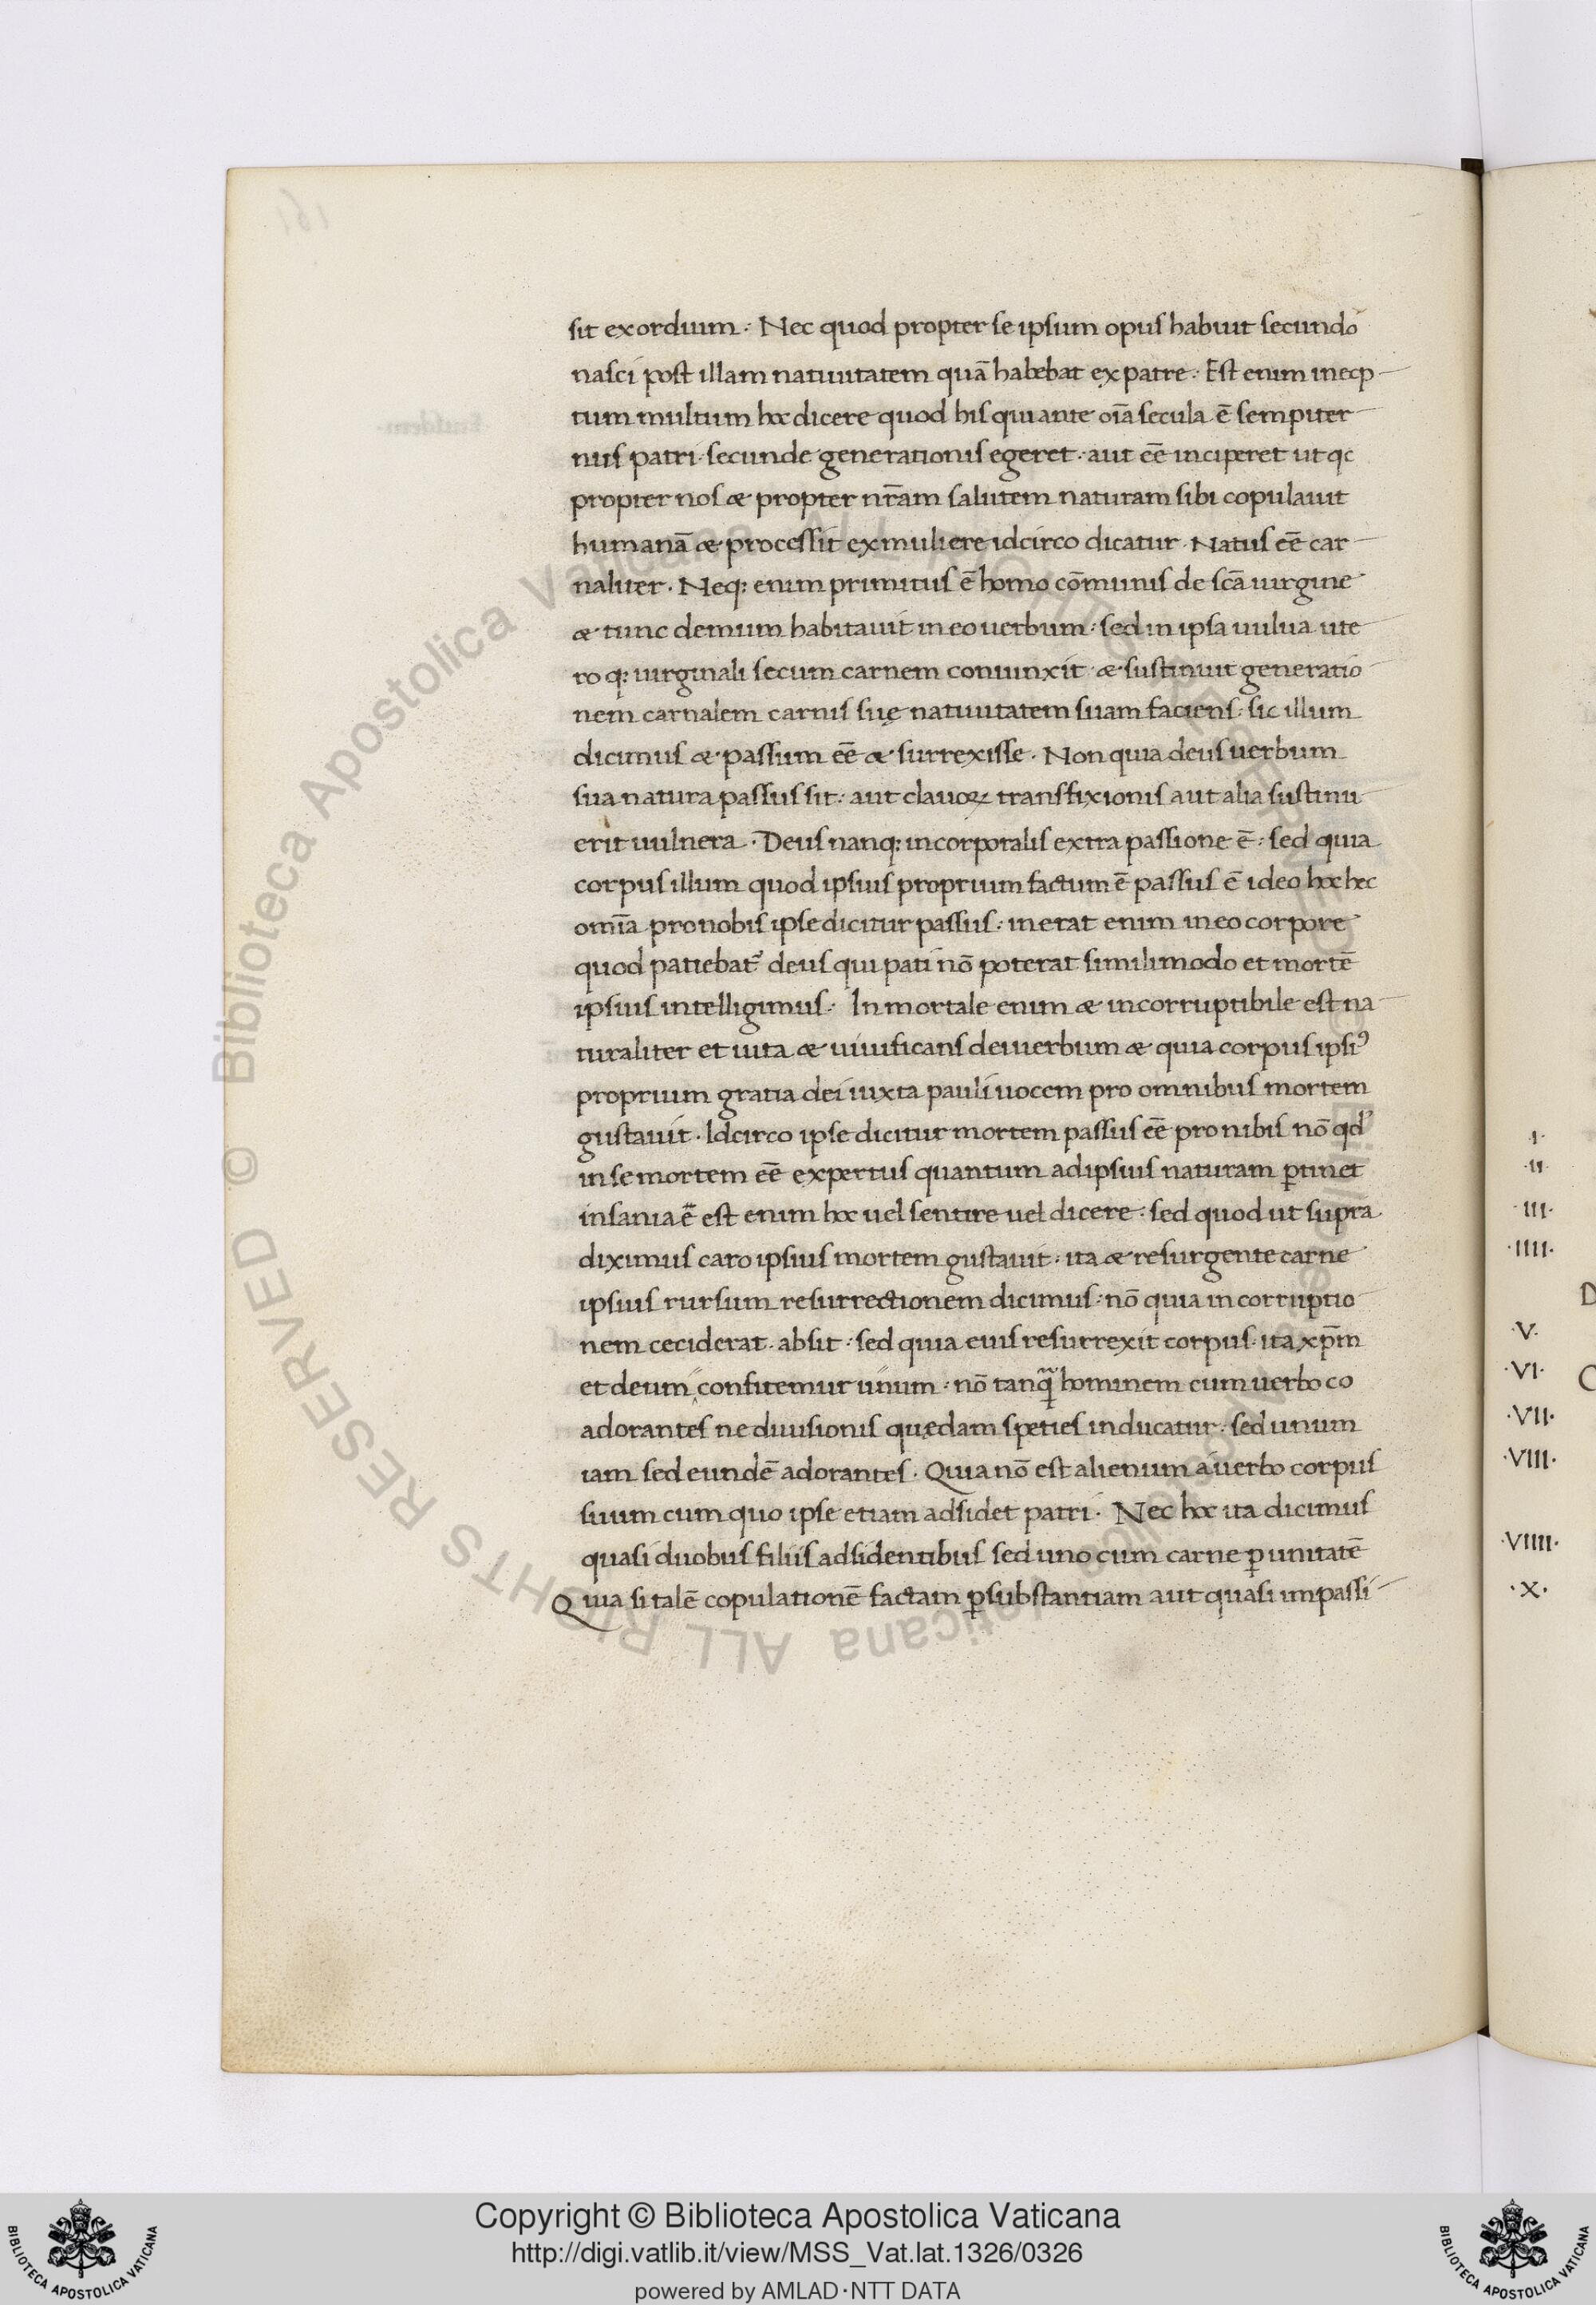 sit exordium : Nec quod propter se ipsum opus habuit secundo
nasci post illam natiuitatem quā habebat ex patre : Est enim inep
tum multum hoc dicere quod his qui ante oīa secula ē sempiter
nus patri secunde generationis egeret : aut eē inciperet ut qc
propter nos & propter nr̄am salutem naturam sibi copulauit
humanā & processit ex muliere idcirco dicatur . Natus eē car
naliter . Neq; enim primitus ē homo cōmunis de scā uirgine
& tunc demum habitauit in eo uerbum : sed in ipsa uulua ute
ro q; uirginali secum carnem coniunxit & sustinuit generatio
nem carnalem carnis suę natiuitatem suam faciens : sic illum
dicimus & passum eē & surrexisse . Non quia deus uerbum
sua natura passus sit : aut clauoꝝ transfixionis aut alia sustinu
erit uulnera . Deus nanq; incorporalis extra passione ē : sed quia
corpus illum quod ipsius proprium factum ē passus ē ideo hoc hec
omīa pro nobis ipse dicitur passus : inerat enim in eo corpore
quod patiebat᷑ deus qui pati nō poterat simili modo et mortē
ipsius intelligimus : In mortale enim & incorruptibile est na
turaliter et uita & uiuificans dei uerbum & quia corpus ipsiꝰ
proprium gratia dei iuxta pauli uocem pro omnibus mortem
gustauit . Idcirco ipse dicitur mortem passus eē pro nibis nō qd'
in se mortem eē expertus quantum ad ipsius naturam ꝑtinet
insania ē est enim hoc uel sentire uel dicere : sed quod ut supra
diximus caro ipsius mortem gustauit : ita & resurgente carne
ipsius rursum resurrectionem dicimus : nō quia in corruptio
nem ceciderat . absit : sed quia eius resurrexit corpus . ita xp̄m
et deum confitemur unum : nō tanq̄ hominem cum uerbo co
adorantes ne diuisionis quędam speties inducatur : sed unum
iam sed eundē adorantes . Quia nō est alienum a uerbo corpus
suum cum quo ipse etiam adsidet patri . Nec hoc ita dicimus
quasi duobus filiis adsidentibus sed uno cum carne ꝑ unitatē
Quia si talē copulationē factam ꝑ substantiam aut quasi impassi
.I.
.II.
.III.
.IIII.
.V.
.VI.
.VII.
.VIII.
.VIIII.
.X.
D
C
© Biblioteca Apostolica Vaticana ALL RIGHTS RESERVED © Biblioteca Apostolica Vaticana ALL RIGHTS RESERVED
BIBLIOTECA APOSTOLICA VATICANA
Copyright © Biblioteca Apostolica Vaticana
http://digi.vatlib.it/view/MSS_Vat.lat.1326/0326
powered by AMLAD·NTT DATA
BIBLIOTECA APOSTOLICA VATICANA